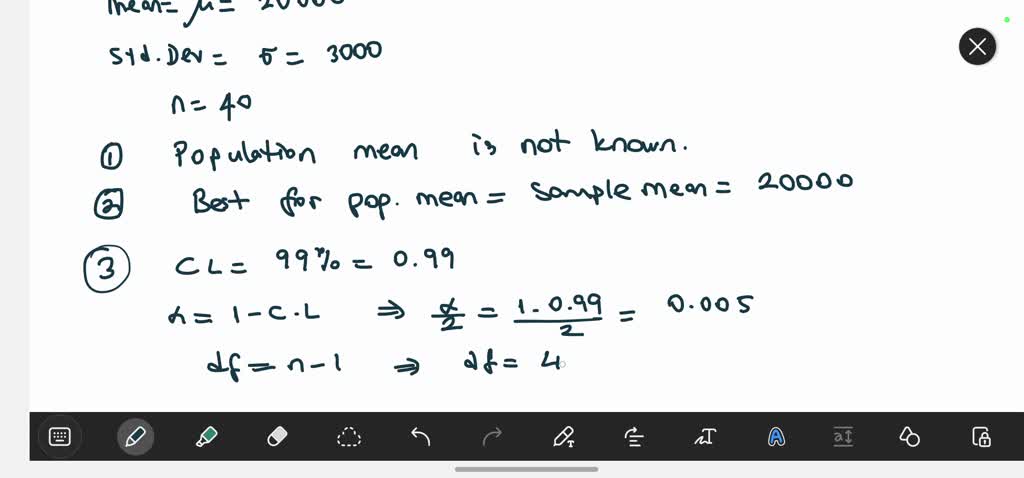 mean = μ = 20000
Std. Dev = σ = 3000
n = 40
① Population mean is not known.
② Best for pop. mean = sample mean = 20000
③ CL = 99% = 0.99
α = 1 - C.L ⇒ α/2 = (1 - 0.99)/2 = 0.005
df = n - 1 ⇒ df = 4